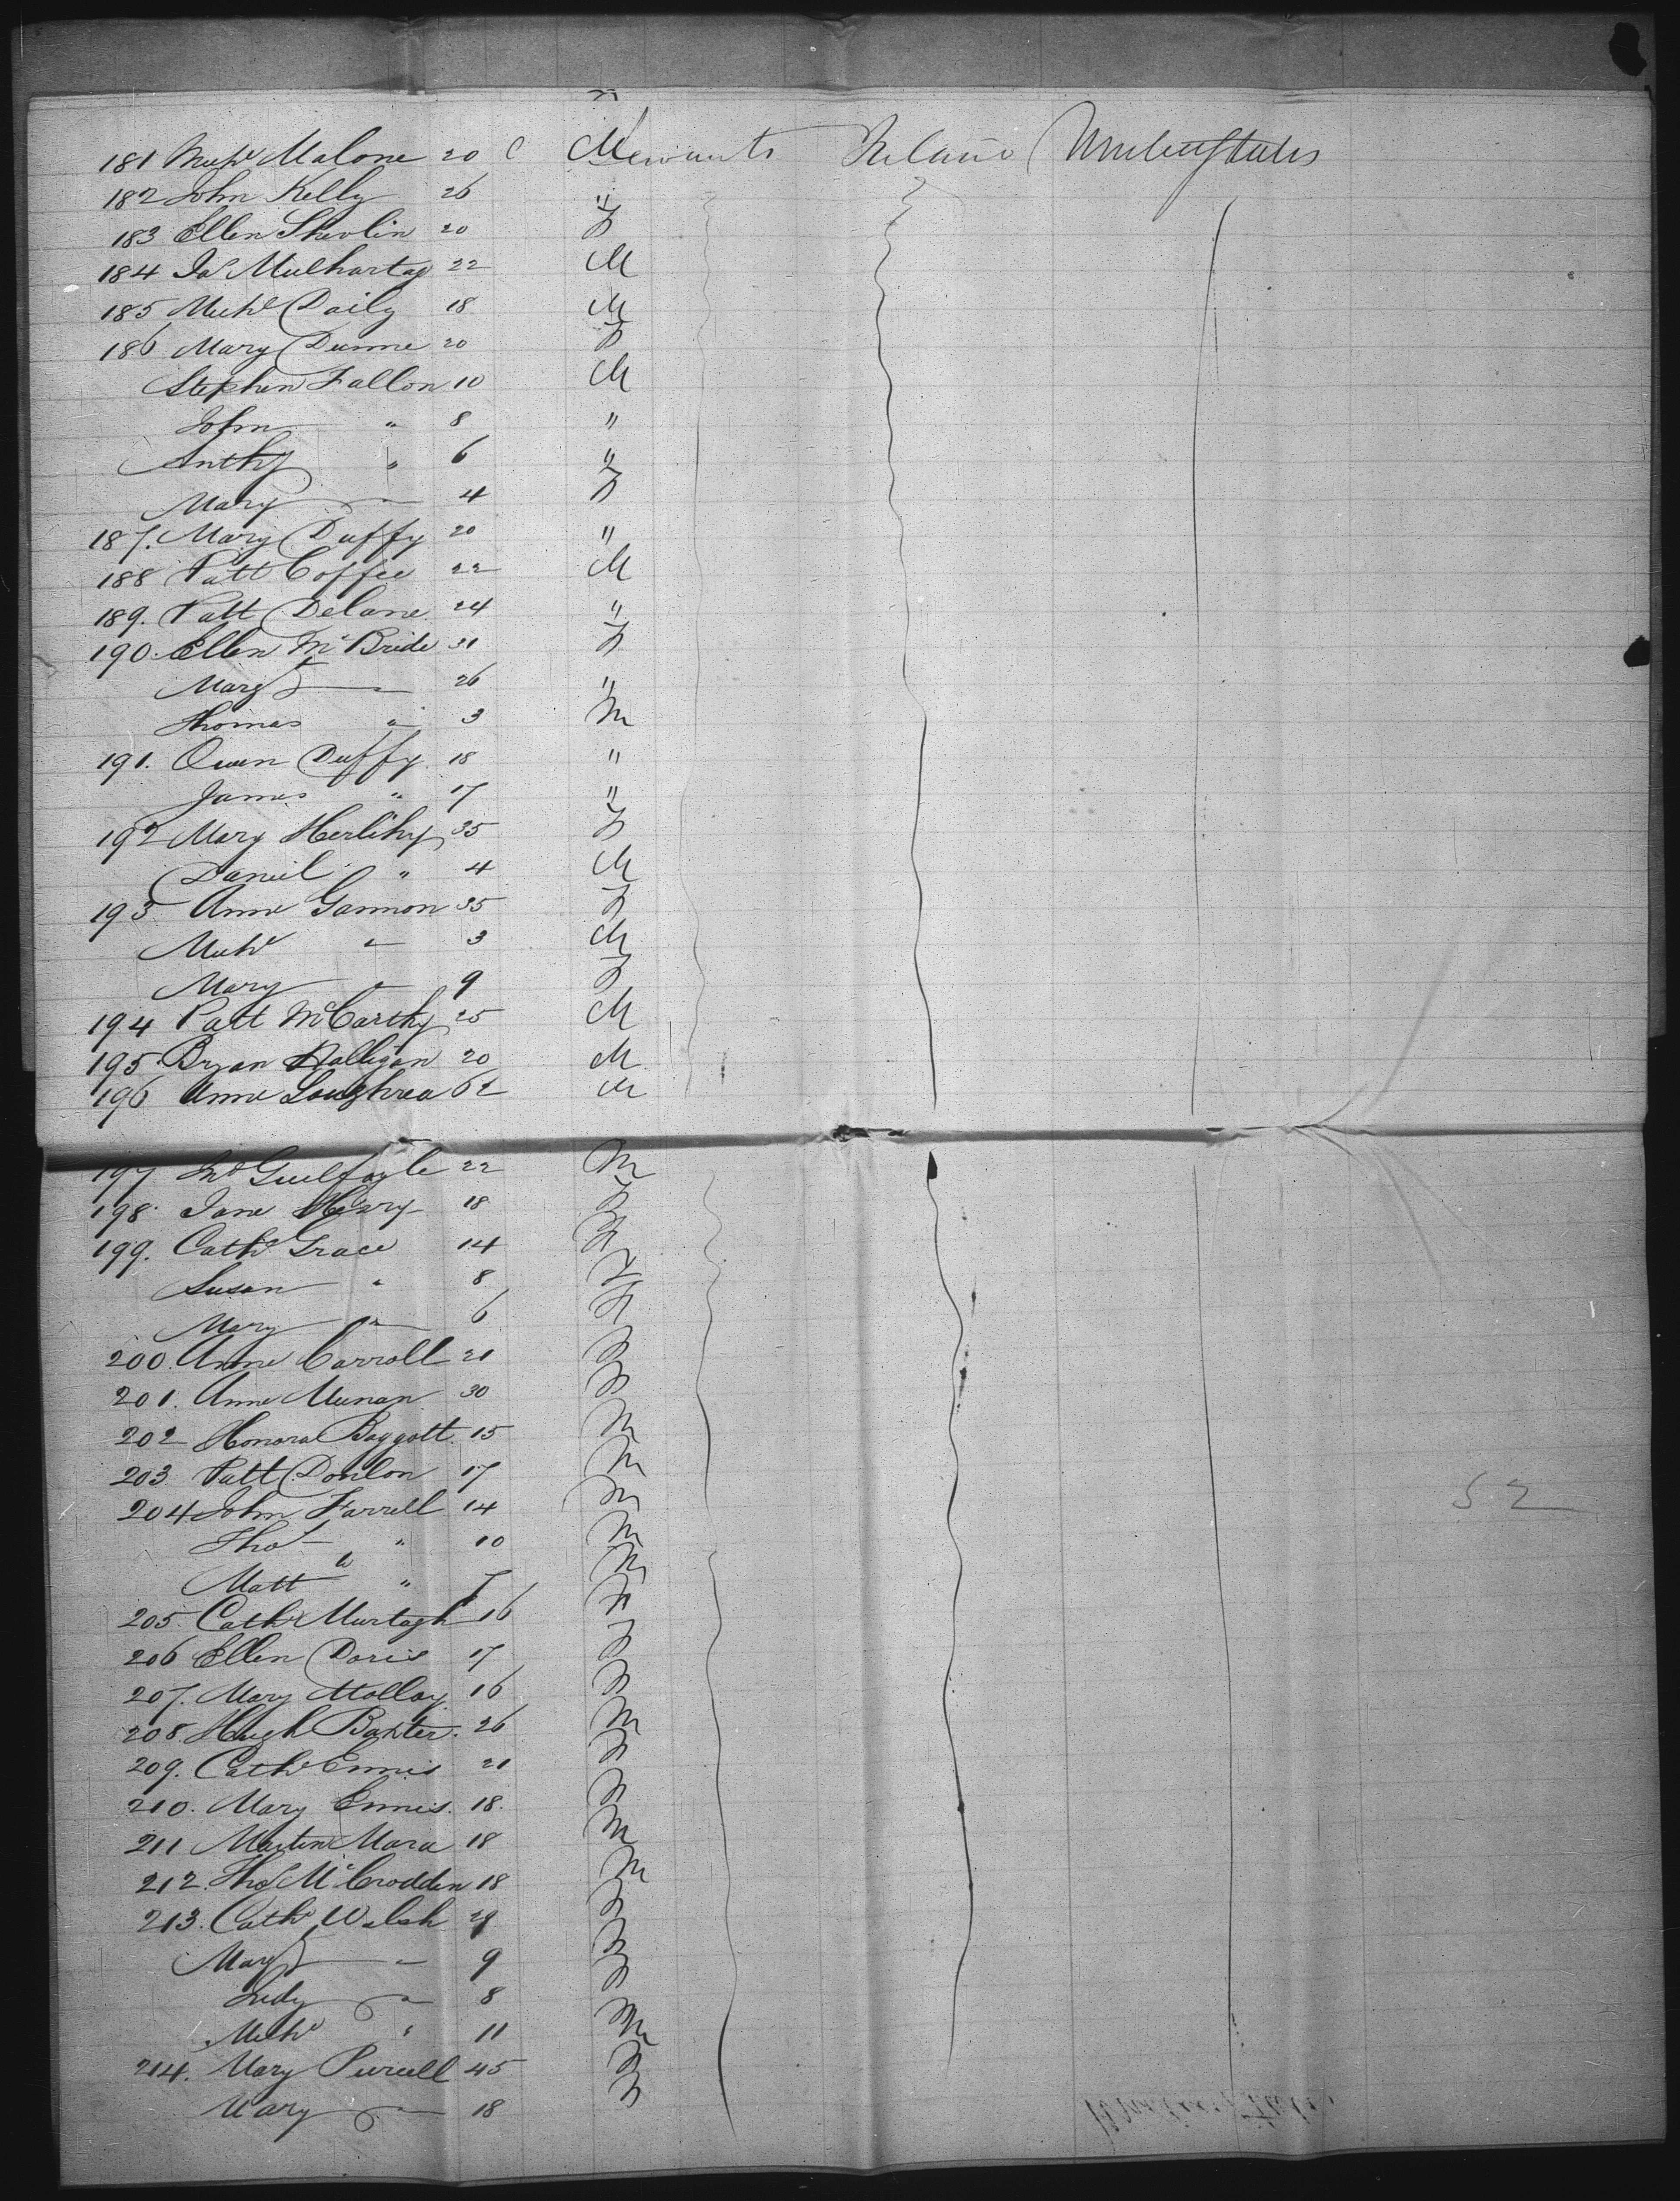 181 Mich<sup>l</sup> Malone 20 M Servants Ireland United States
182 John Kelly 26 "
183 Ellen Shevlin 20 F
184 Ja<sup>s</sup> Mulhartag 22 M
185 Mich<sup>l</sup> Daily 18 M
186 Mary Dunne 20 F
Stephen Fallon 10 M
John " 8 "
Anthy " 6 "
Mary " 4 F
187. Mary Duffy 20 "
188 Patt Coffee 22 M
189. Patt Delane 24 "
190. Ellen McBride 31 F
Marg<sup>t</sup> " 26 "
Thomas " 3 M
191. Owen Duffy 18 "
James " 17 "
192 Mary Herlihy 35 F
Daniel " 4 M
193 Anne Gannon 35 F
Mich<sup>l</sup> " 3 M
Mary " 9 F
194 Patt McCarthy 25 M
195 Bryan Halligan 20 M
196 Anne Loughrea 62 M
197 Jn<sup>o</sup> Guilfoyle 22 M
198. Jane Henry 18 F
199. Cath<sup>e</sup> Grace 14 F
Susan " 8 F
Mary " 6 F
200. Anne Carroll 21 F
201. Anne Munan 30 F
202 Honora Baggott 15 M
203 Patt Donlon 17 M
204 John Farrell 14 M
Tho<sup>s</sup> " 10 M
Matt<sup>w</sup> " 7 M
205 Cath<sup>e</sup> Murtagh 16 F
206 Ellen Doris 17 F
207. Mary Molloy 16 F
208. Hugh Baxter. 26 M
209. Cath<sup>e</sup> Ennis 21 F
210. Mary Ennis. 18. F
211 Martin Mara 18 M
212. Tho<sup>s</sup> McCrodden 18 M
213. Cath<sup>e</sup> Walsh 29 F
Marg<sup>t</sup> " 9 F
Judy " 8 F
Mich<sup>l</sup> " 11 M
214. Mary Purcell 45 F
Mary " 18 F
52